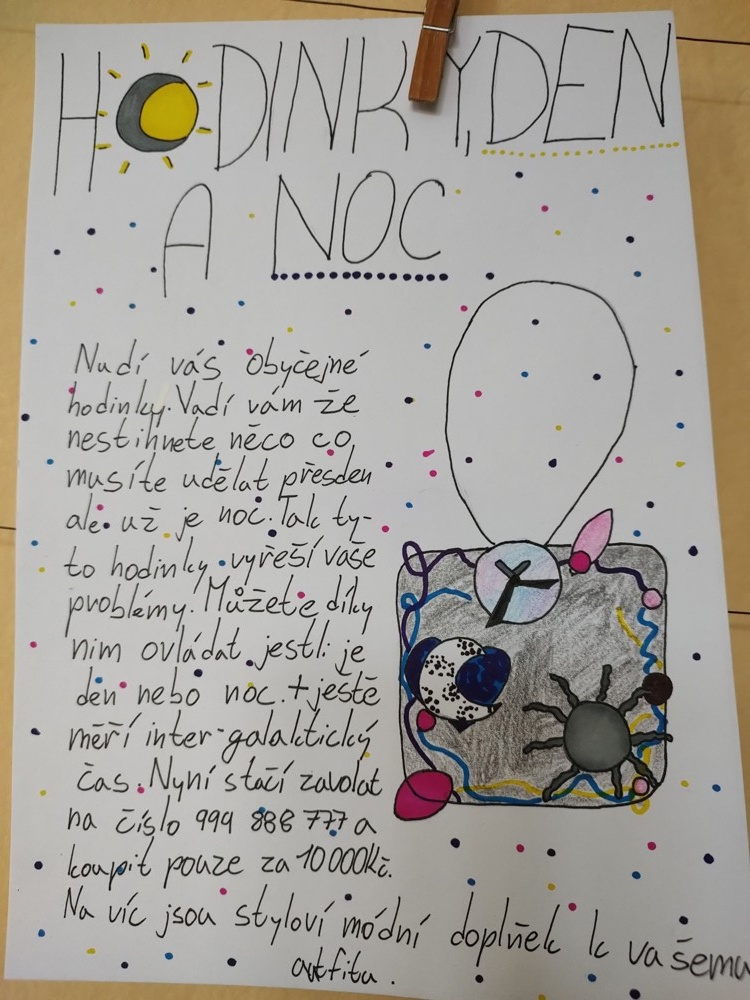 HODINKY, DEN
A NOC
Nudí vás obyčejné
hodinky. Vadí vám že
nestihnete něco co,
musíte udělat přesden
ale už je noc. Tak ty-
to hodinky vyřeší vaše
problémy. Můžete díky
nim ovládat jestli je
den nebo noc. + ještě
měří inter-galaktický
čas. Nyní stačí zavolat
na číslo 999 888 777 a
koupit pouze za 10 000Kč.
Na víc jsou styloví módní doplněk k vašemu
outfitu.